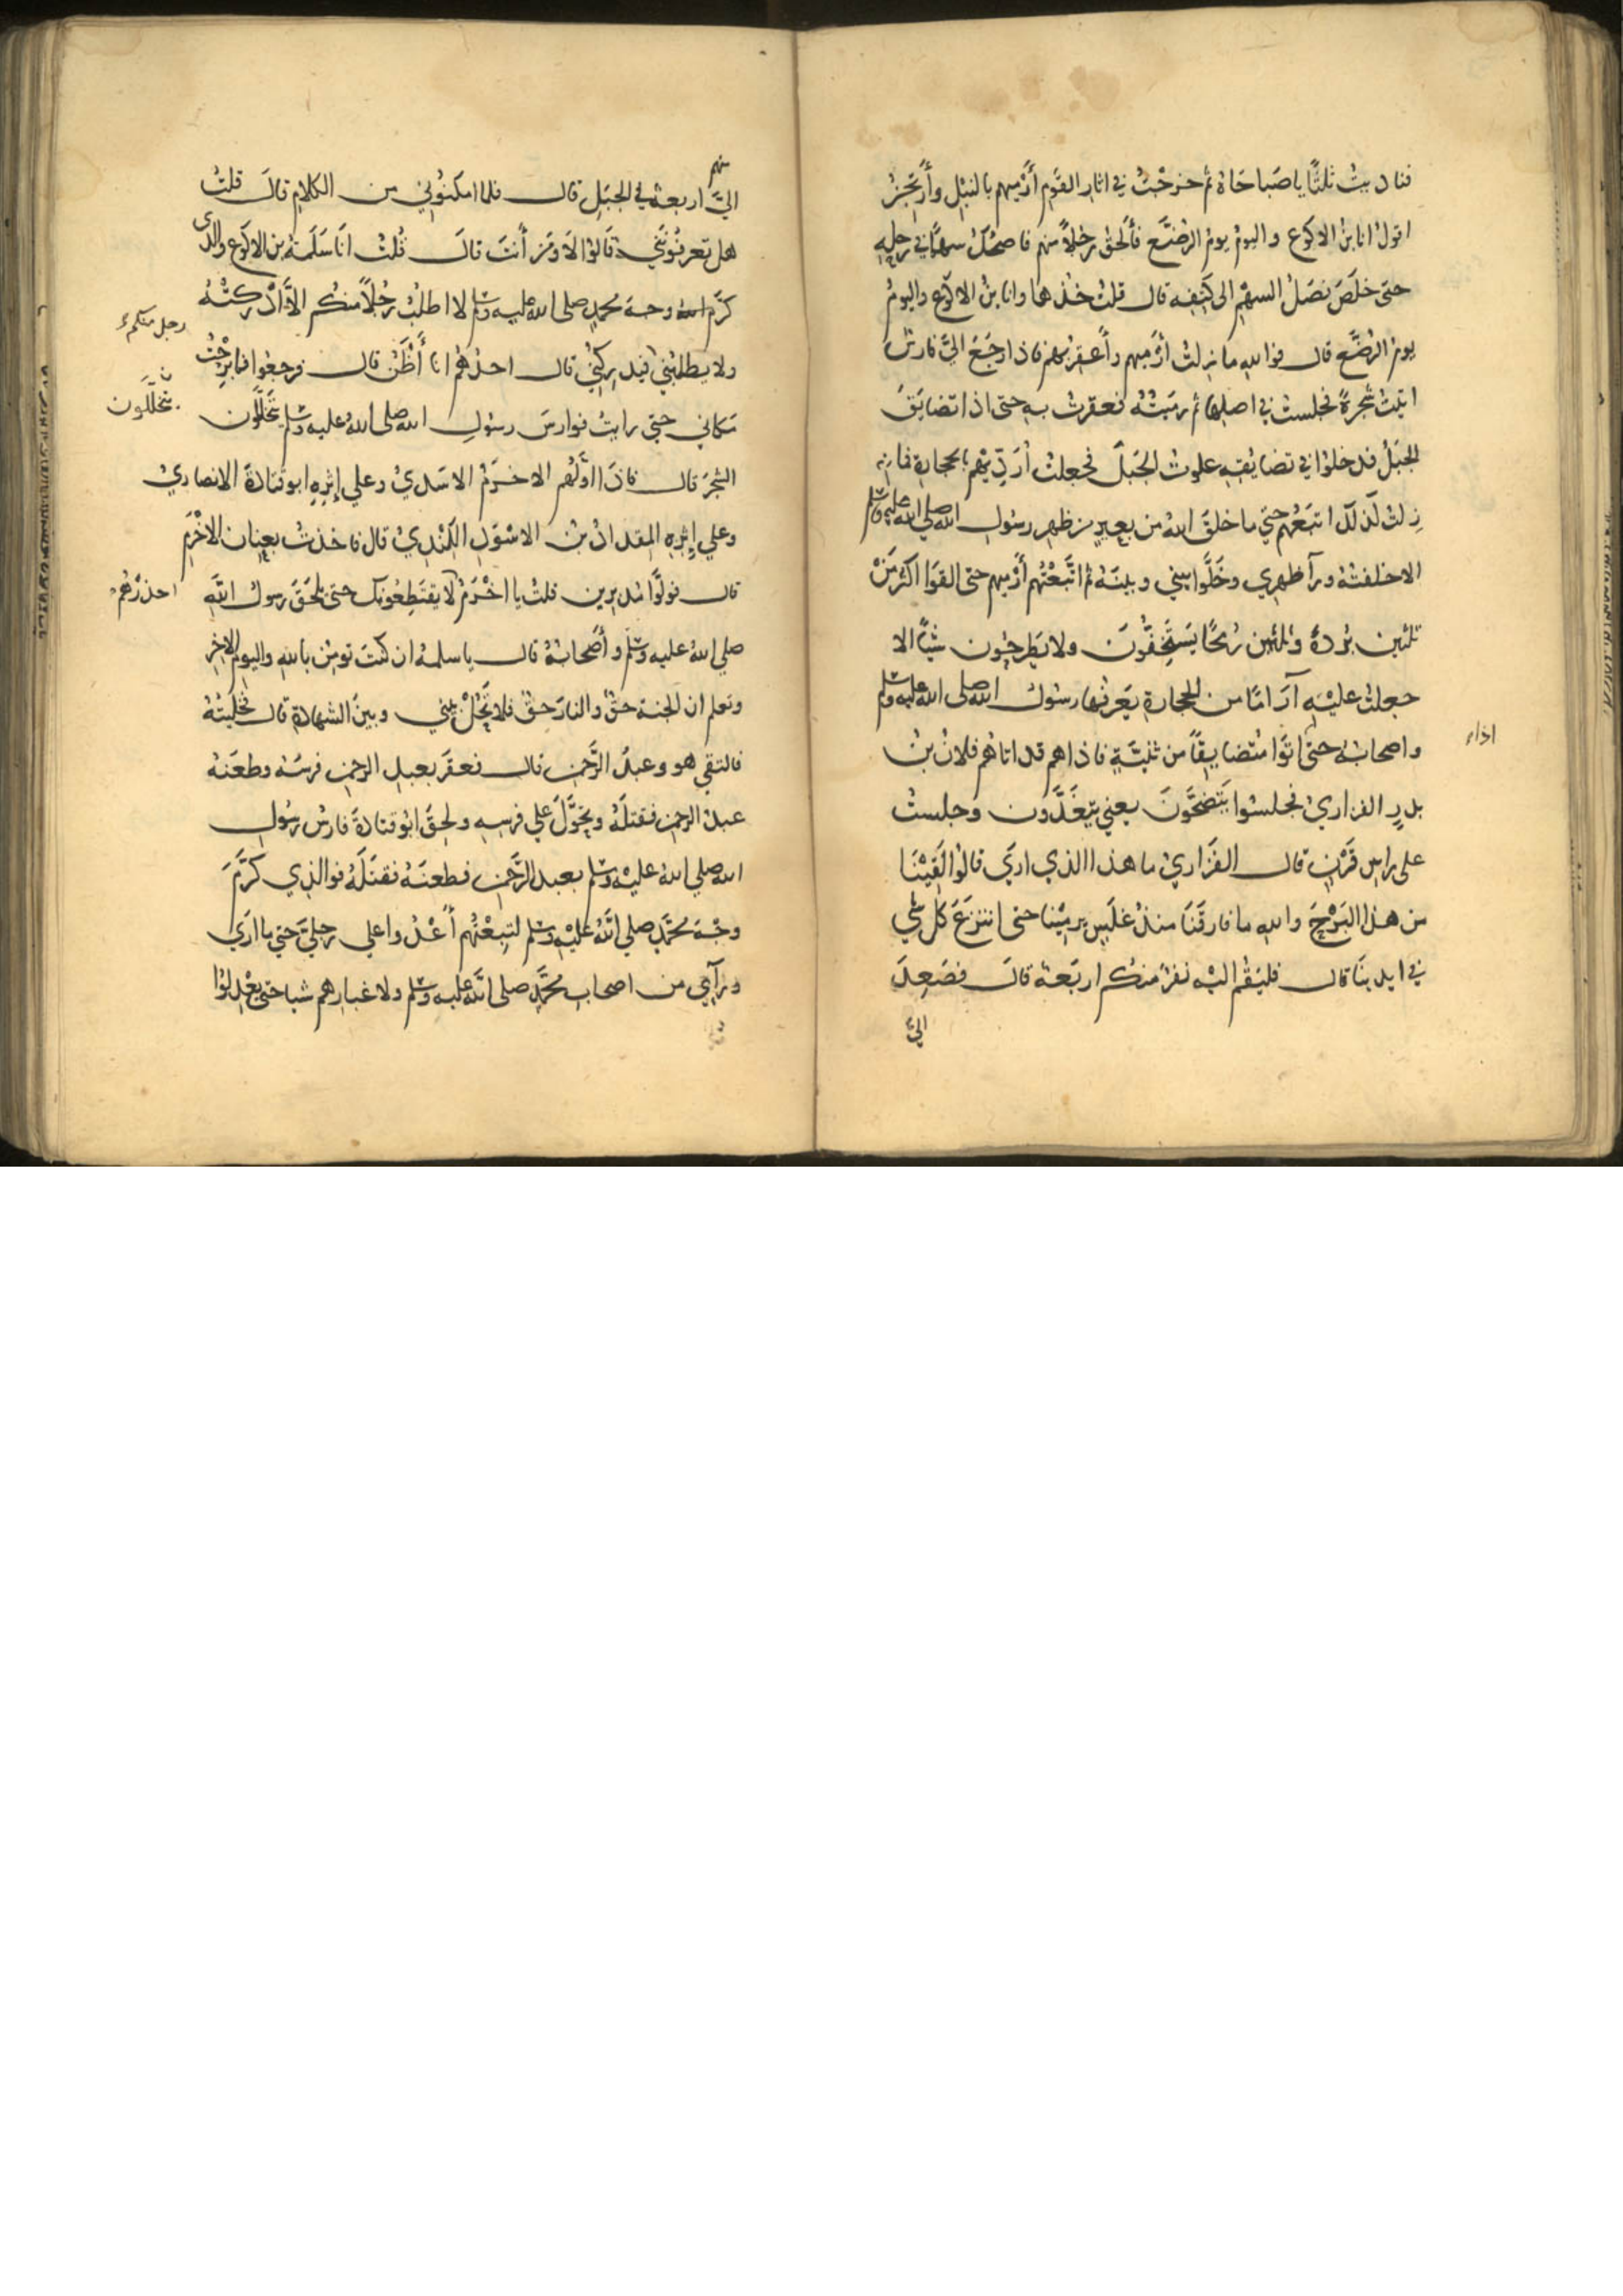 فناديتُ ثلثًا يا صَباحَاهْ ثم خرجْتُ في اثار القَوم أَرْميهم بالنَبْل وأَرتَجِزُ
اقولُ انا ابنُ الاكوَع واليومُ يومُ الرضَّع فأَلحَقُ رجلاً منهم فاصكُّ سهمًا في رحلِهِ
حتى خلَصَ نصَلُ السهْم الى كَتِفِه قال قلتُ خُذها وانا ابنُ الاكوَع واليومُ
يومُ الرضَّع قال فوالله ما زلتُ أرْميهم وأَعقِرُ بهم فاذا رجَعَ اليَّ فارسٌ
اتيتُ شجرةً فجلستُ في اصلها ثم رمَيتُهُ فعقرتُ به حتى اذا تضايَقَ
الجبَلُ فدخلوا في تضايُقِه علوتُ الجبَلَ فجعلتُ أُرَدِّيهم بالحجارة فما
زِلتُ كذلكَ اتبَعُهم حتي ما خلَقَ اللهُ من بعيرٍ من ظهر رسول الله صلى الله عليه وسلم
الا خلفتُهُ ورآ ظهري وخَلَّوا بيني وبينَهُ ثم اتَّبعْتُهم أَرْميهم حتى القَوا اكثرَ مِنْ
ثلثين بُردةً وثلثين رُمحًا يَستَخِفُّونَ ولا يَطرحُون شيًا الا
جعلتُ عليْهِ آرَامًا من الحجارةِ يَعرفُها رسولُ الله صلى الله عليه وسلم
واصحابُهُ حتى اتَوا مُتضايِقًا من ثنيَّةٍ فاذا هم قد اتاهُم فلانُ بنُ
اذاء
بدرٍ الفزاريُ فجلسُوا يَتَضحَّونَ يعني يتغَدَّون وجلستُ
على راسِ قَرْنٍ قال الفَزَاريُ ما هذا الذي اريَ قالُوا لَقِيْنَا
من هذا البَرْحَ والله ما فارقَنَا منذُ غلَسٍ يرميْنا حتى انتزعَ كلَ شيٍ
في ايدينَا قال فليَقُم اليْه نفرٌ منكُم اربَعةٌ قالَ فصَعِدَ
اليَّ
منهم
اليَّ اربعةٌ في الجبَلِ قال فلما امكنُوني من الكلام قالَ قلتُ
هل تعرفُونَني قالُوا لا ومَن أنتَ قالَ قُلتُ انَا سَلَمَةُ بن الاكوَع والذى
كرَّمَ وجهَ محمدٍ صلى الله عليه وسلم لا اطلبُ رجُلاً منكُم الا أَدْركتُهُ
رجل منكم
ولا يطلبُني فيدركَني قال احدُهُم انا أَظُنُّ قال فرجعُوا فما برِحْتُ
مكاني حتي رايتُ فوارسَ رسُولِ الله صلى اللهُ عليه وسلم يتخَلَّلون
يتخللون
الشجَرَ قال فاذَا أَوَّلُهم الاخرَمُ الاسَديُ وعلي إِثْرِهِ ابو قتادةَ الانصاريُ
وعلي إِثْرِهِ المقدادُ بنُ الاسْوَدِ الكِنْديُ قال فاخذتُ بعِنانِ الاخْرَمِ
قال فولَّوا مُدبِرين قلتُ يا اخْرَمُ لا يقتَطِعُونكَ حتى يلحَقَ رسولُ اللهِ
احذرهم
صلى اللهُ عليه وسلم وأَصْحابُهُ قال ياسلمةُ ان كنتَ تومِنُ باللهِ واليومِ الاخِرِ
وتعلمُ ان الجنةَ حقٌ والنارَ حقٌ فلا تَحُلْ بيني وبينَ الشهادةِ قال فخلَّيتُهُ
فالتقَي هو وعبدُ الرَّحمنِ قال فعقَرَ بعبدِ الرحمنِ فرسَهُ وطعَنَهُ
عبدُ الرحمنِ فقتلَهُ وتحوَّلَ علي فرسِهِ ولحِقَ ابُو قتادةَ فارسُ رسُولِ
الله صلى اللهُ عليْه وسلم بعبدِ الرَّحمنِ فطعنَهُ فقتَلَهُ فوالذِي كرَّمَ
وجْهَ محمَّدٍ صلى اللهُ عليْه وسلم لتبِعْتُهم أَعْدُوا علي رجليَّ حتي ما اَرَي
ورآيي من اصحابِ محمَّدٍ صلى اللهُ عليه وسلم ولا غبارِهم شيا حتي يَعْدِلُوا